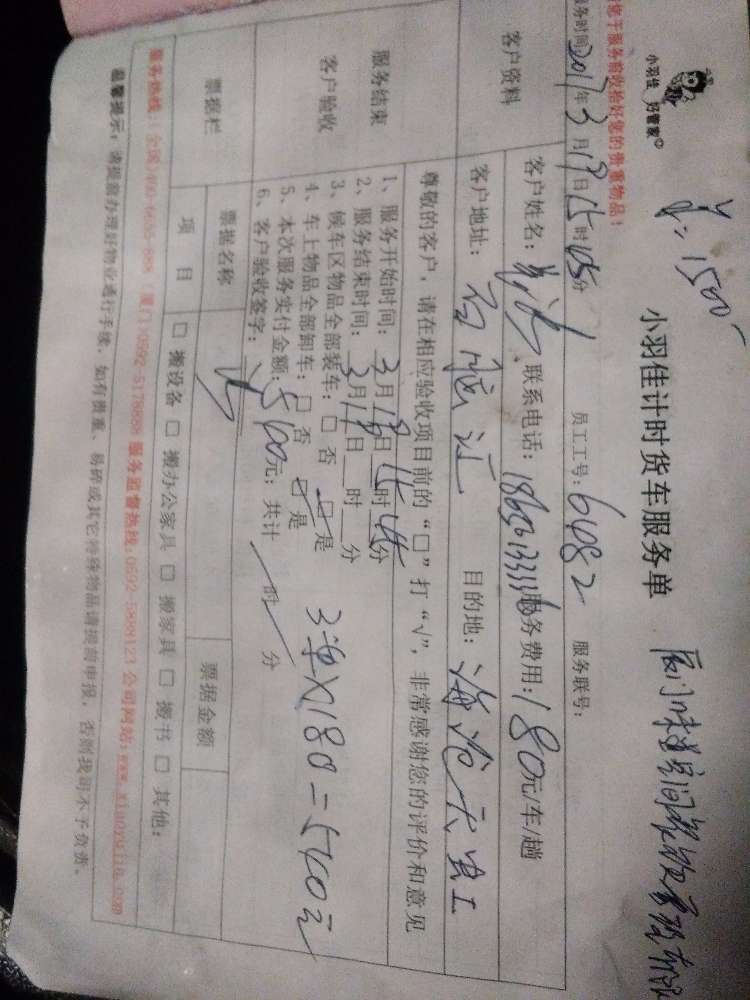 小羽佳 好管家
¥=1500
小羽佳计时货车服务单
您于服务前收拾好您的贵重物品！
服务时间2017年3月19日15时05分 员工工号：6082 服务联号：
客户资料
客户姓名： 联系电话： 服务费用：180元/车/趟
客户地址： 目的地：海沧
服务结束
客户验收
尊敬的客户，请在相应验收项目前的“□”打“√”，非常感谢您的评价和意见
1、服务开始时间：3月19日15时05分
2、服务结束时间：3月19日 时 分
3、候车区物品全部装车：□ 否 □ 是
4、车上物品全部卸车：□ 否 □ 是
5、本次服务实付金额：540元；共计 时 分
6、客户验收签字：
3单X180=540元
票据栏
票据名称
票据金额
项 目
□ 搬设备 □ 搬办公家具 □ 搬家具 □ 搬书 □ 其他：
服务热线：全国)400-6655-888 (厦门)0592-5178888 服务监督热线：0592-5888123 公司网站：www.xiaoyujia.com
温馨提示：请提前办理好物业通行手续，如有贵重、易碎或其它特殊物品请提前申报，否则我司不予负责。